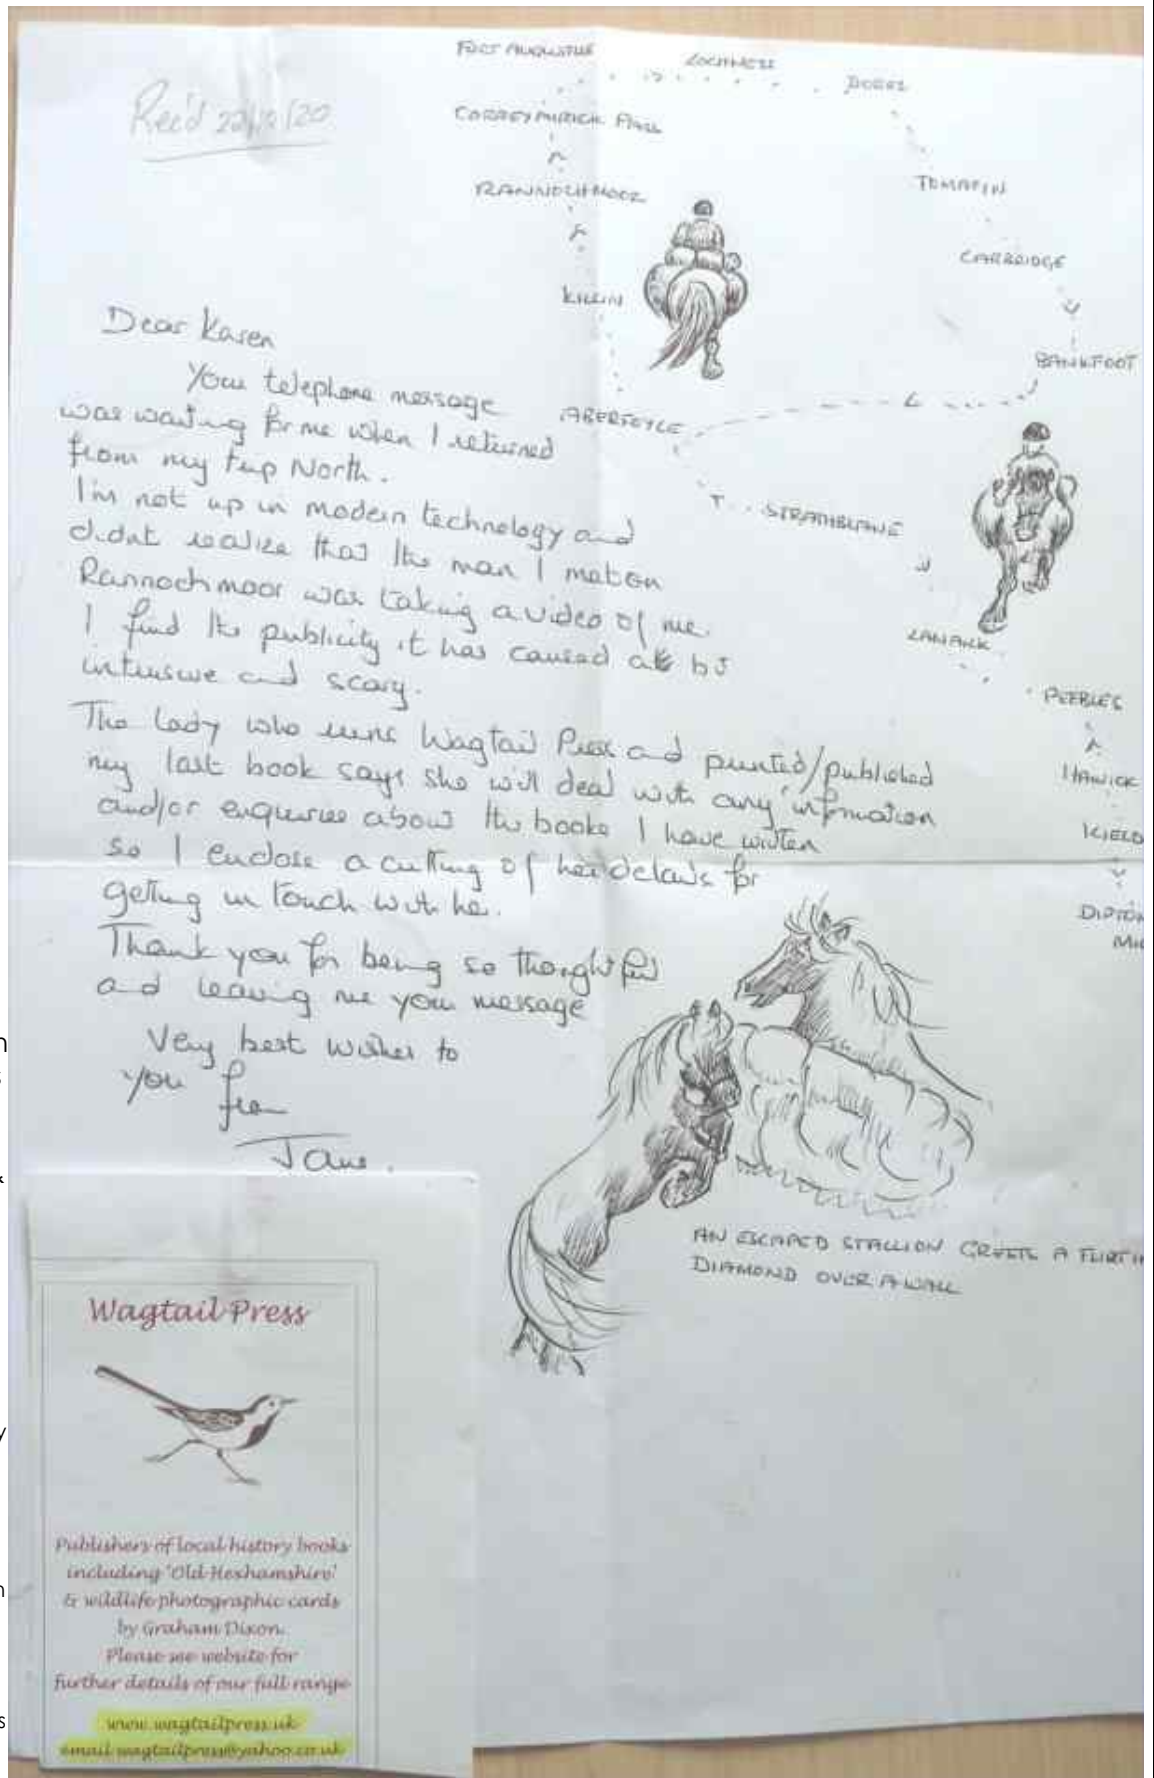 Rec'd 22/12/20
FORT AUGUSTUS
LOCHNESS
DORES
CORREYAIRICK PASS
RANNOCHMOOR
TOMATIN
CARRBRIDGE
KILLIN
BANKFOOT
ABERFOYLE
STRATHBLANE
LANARK
PEEBLES
HAWICK
KIELD
DIPTON
MI
Dear Karen
Your telephone message
was waiting for me when I returned
from my trip North.
I'm not up in modern technology and
didnt realize that the man I met on
Rannoch moor was taking a video of me.
I find the publicity it has caused a bit
intrusive and scary.
The lady who runs Wagtail Press and printed/published
my last book says she will deal with any infomation
and/or enquiries about the books I have written
so I enclose a cutting of her details for
getting in touch with her.
Thank you for being so thoughtful
and leaving me your message
Very best wishes to
you from
Jane.
AN ESCAPED STALLION GREETS A FLIRTI
DIAMOND OVER A WALL
Wagtail Press
Publishers of local history books
including 'Old Hexhamshire'
& wildlife photographic cards
by Graham Dixon.
Please see website for
further details of our full range
www.wagtailpress.uk
email wagtailpress@yahoo.co.uk